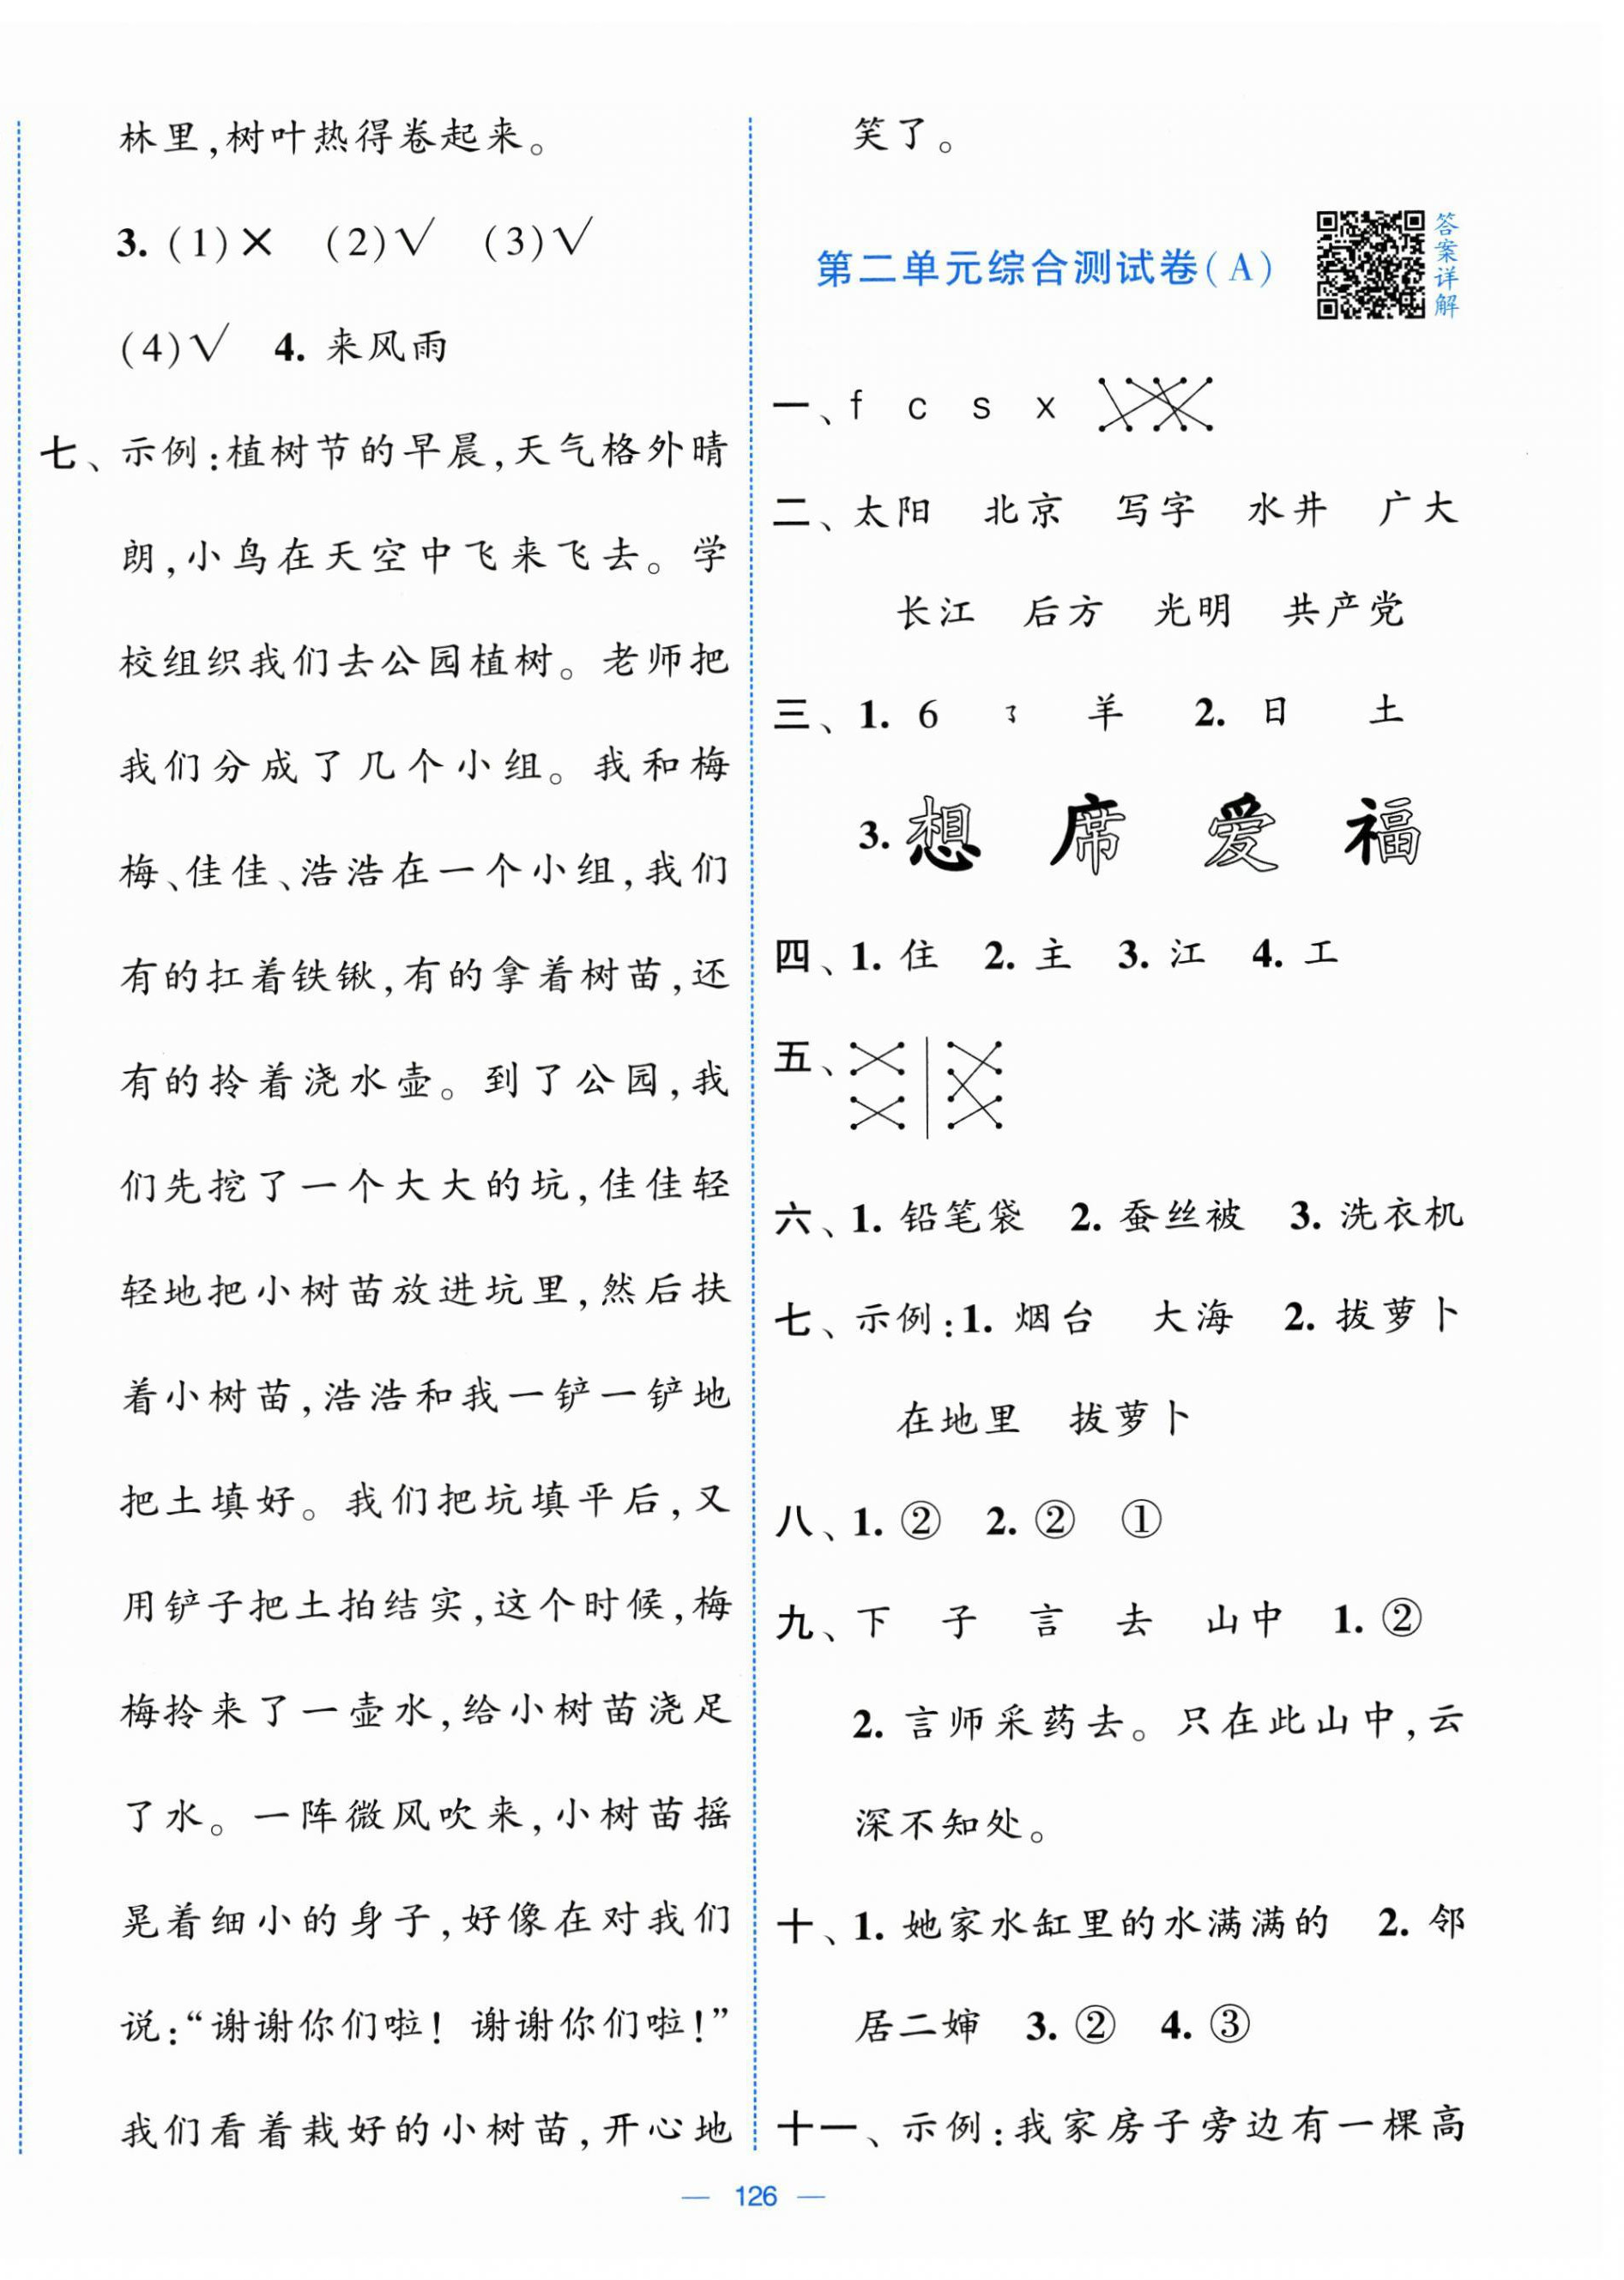 林里,树叶热得卷起来。
3. (1)× (2)√ (3)√
(4)√ 4. 来风雨
七、示例:植树节的早晨,天气格外晴
朗,小鸟在天空中飞来飞去。学
校组织我们去公园植树。老师把
我们分成了几个小组。我和梅
梅、佳佳、浩浩在一个小组,我们
有的扛着铁锹,有的拿着树苗,还
有的拎着浇水壶。到了公园,我
们先挖了一个大大的坑,佳佳轻
轻地把小树苗放进坑里,然后扶
着小树苗,浩浩和我一铲一铲地
把土填好。我们把坑填平后,又
用铲子把土拍结实,这个时候,梅
梅拎来了一壶水,给小树苗浇足
了水。一阵微风吹来,小树苗摇
晃着细小的身子,好像在对我们
说:“谢谢你们啦! 谢谢你们啦!”
我们看着栽好的小树苗,开心地
笑了。
第二单元综合测试卷(A)
答案详解
一、f c s x
二、太阳 北京 写字 水井 广大
长江 后方 光明 共产党
三、1. 6 ㇌ 羊 2. 日 土
3. 想 席 爱 福
四、1. 住 2. 主 3. 江 4. 工
五、
六、1. 铅笔袋 2. 蚕丝被 3. 洗衣机
七、示例:1. 烟台 大海 2. 拔萝卜
在地里 拔萝卜
八、1. ② 2. ② ①
九、下 子 言 去 山中 1. ②
2. 言师采药去。只在此山中,云
深不知处。
十、1. 她家水缸里的水满满的 2. 邻
居二婶 3. ② 4. ③
十一、示例:我家房子旁边有一棵高
— 126 —